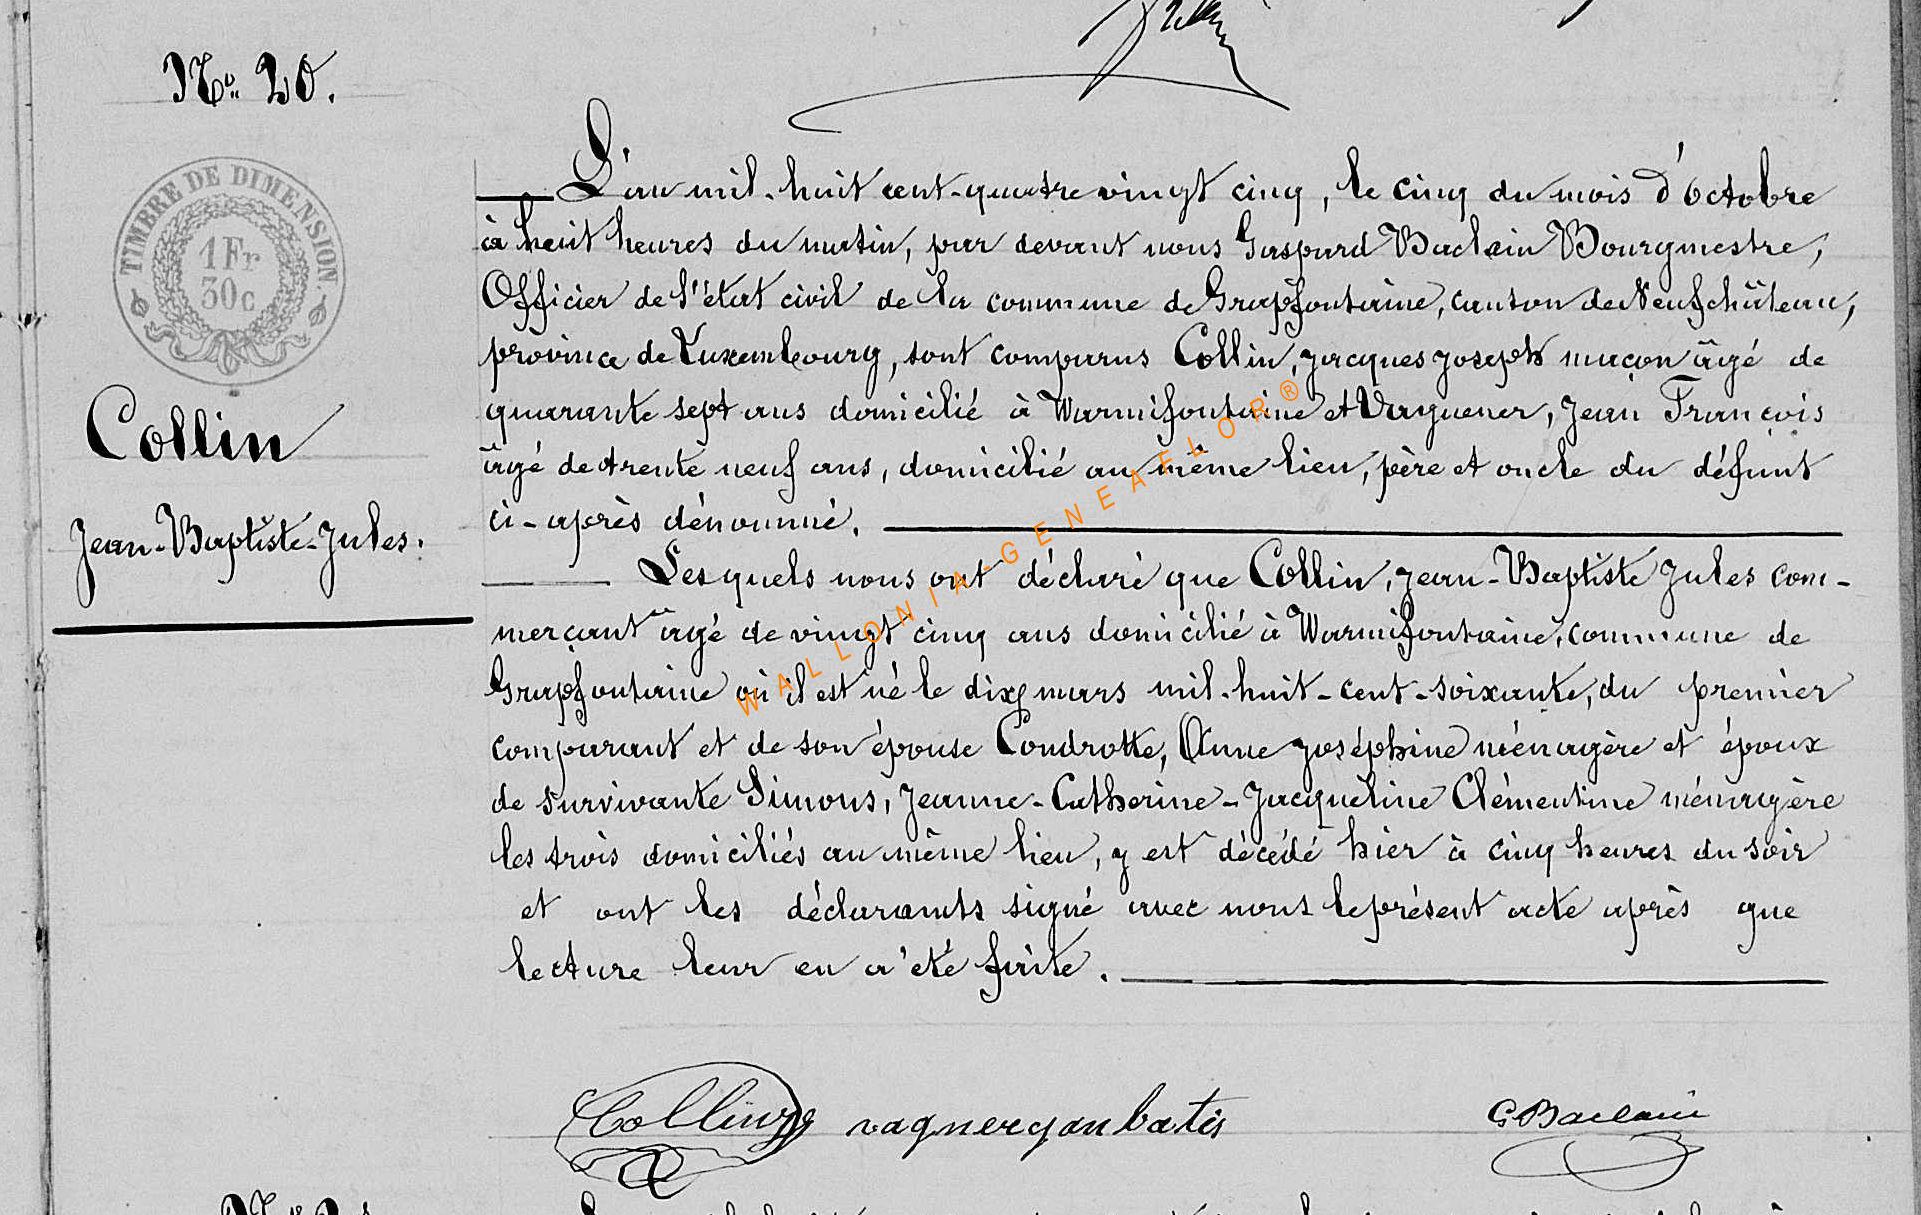 No. 20.
TIMBRE DE DIMENSION.
1 Fr
30c
Collin
Jean-Baptiste-Jules.
L'an mil-huit cent-quatre vingt cinq, le cinq du mois d'Octobre
à heuit heures du matin, par devant nous Gaspard Baclain Bourgmestre,
Officier de l'état civil de la commune de Grapfontaine, canton de Neufchâteau,
province de Luxembourg, sont comparus Collin, jacques joseph maçon âgé de
quarante sept ans domicilié à Warmifontaine et Vaguener, Jean François
âgé de trente neuf ans, domicilié au même lieu, père et oncle du défunt
ci-après dénommé.
Lesquels nous ont déclaré que Collin, jean-Baptiste Jules com-
merçant âgé de vingt cinq ans domicilié à Warmifontaine, commune de
Grapfontaine où il est né le dix mars mil-huit-cent-soixante, du premier
comparant et de son épouse Condrotte, Anne joséphine ménagère et époux
de survivante Simons, Jeanne-Catherine-Jacqueline Clémentine ménagère
les trois domiciliés au même lieu, y est décédé hier à cinq heures du soir
et ont les déclarants signé avec nous le présent acte après que
lecture leur en a été faite.
WALLONIA-GENEAFLOR®
Collin vagnerganbatis G Baclain